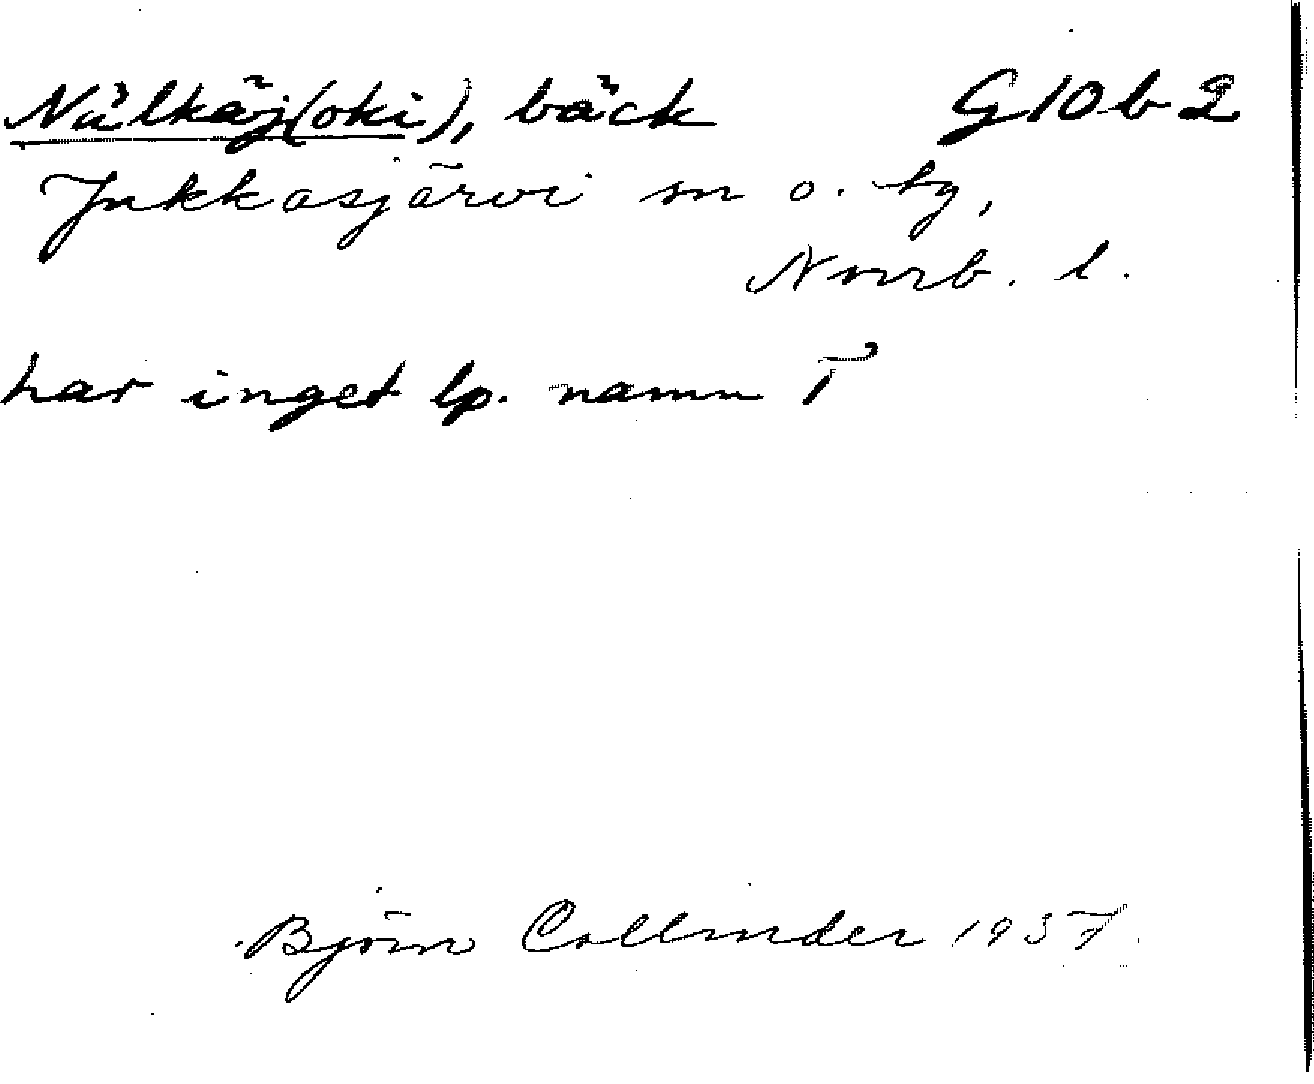 Nälkäj(oki), bäck G10b2
Jukkasjärvi sn o. by,
Norrb. l.
har inget lp. namn T
Björn Collinder 1937